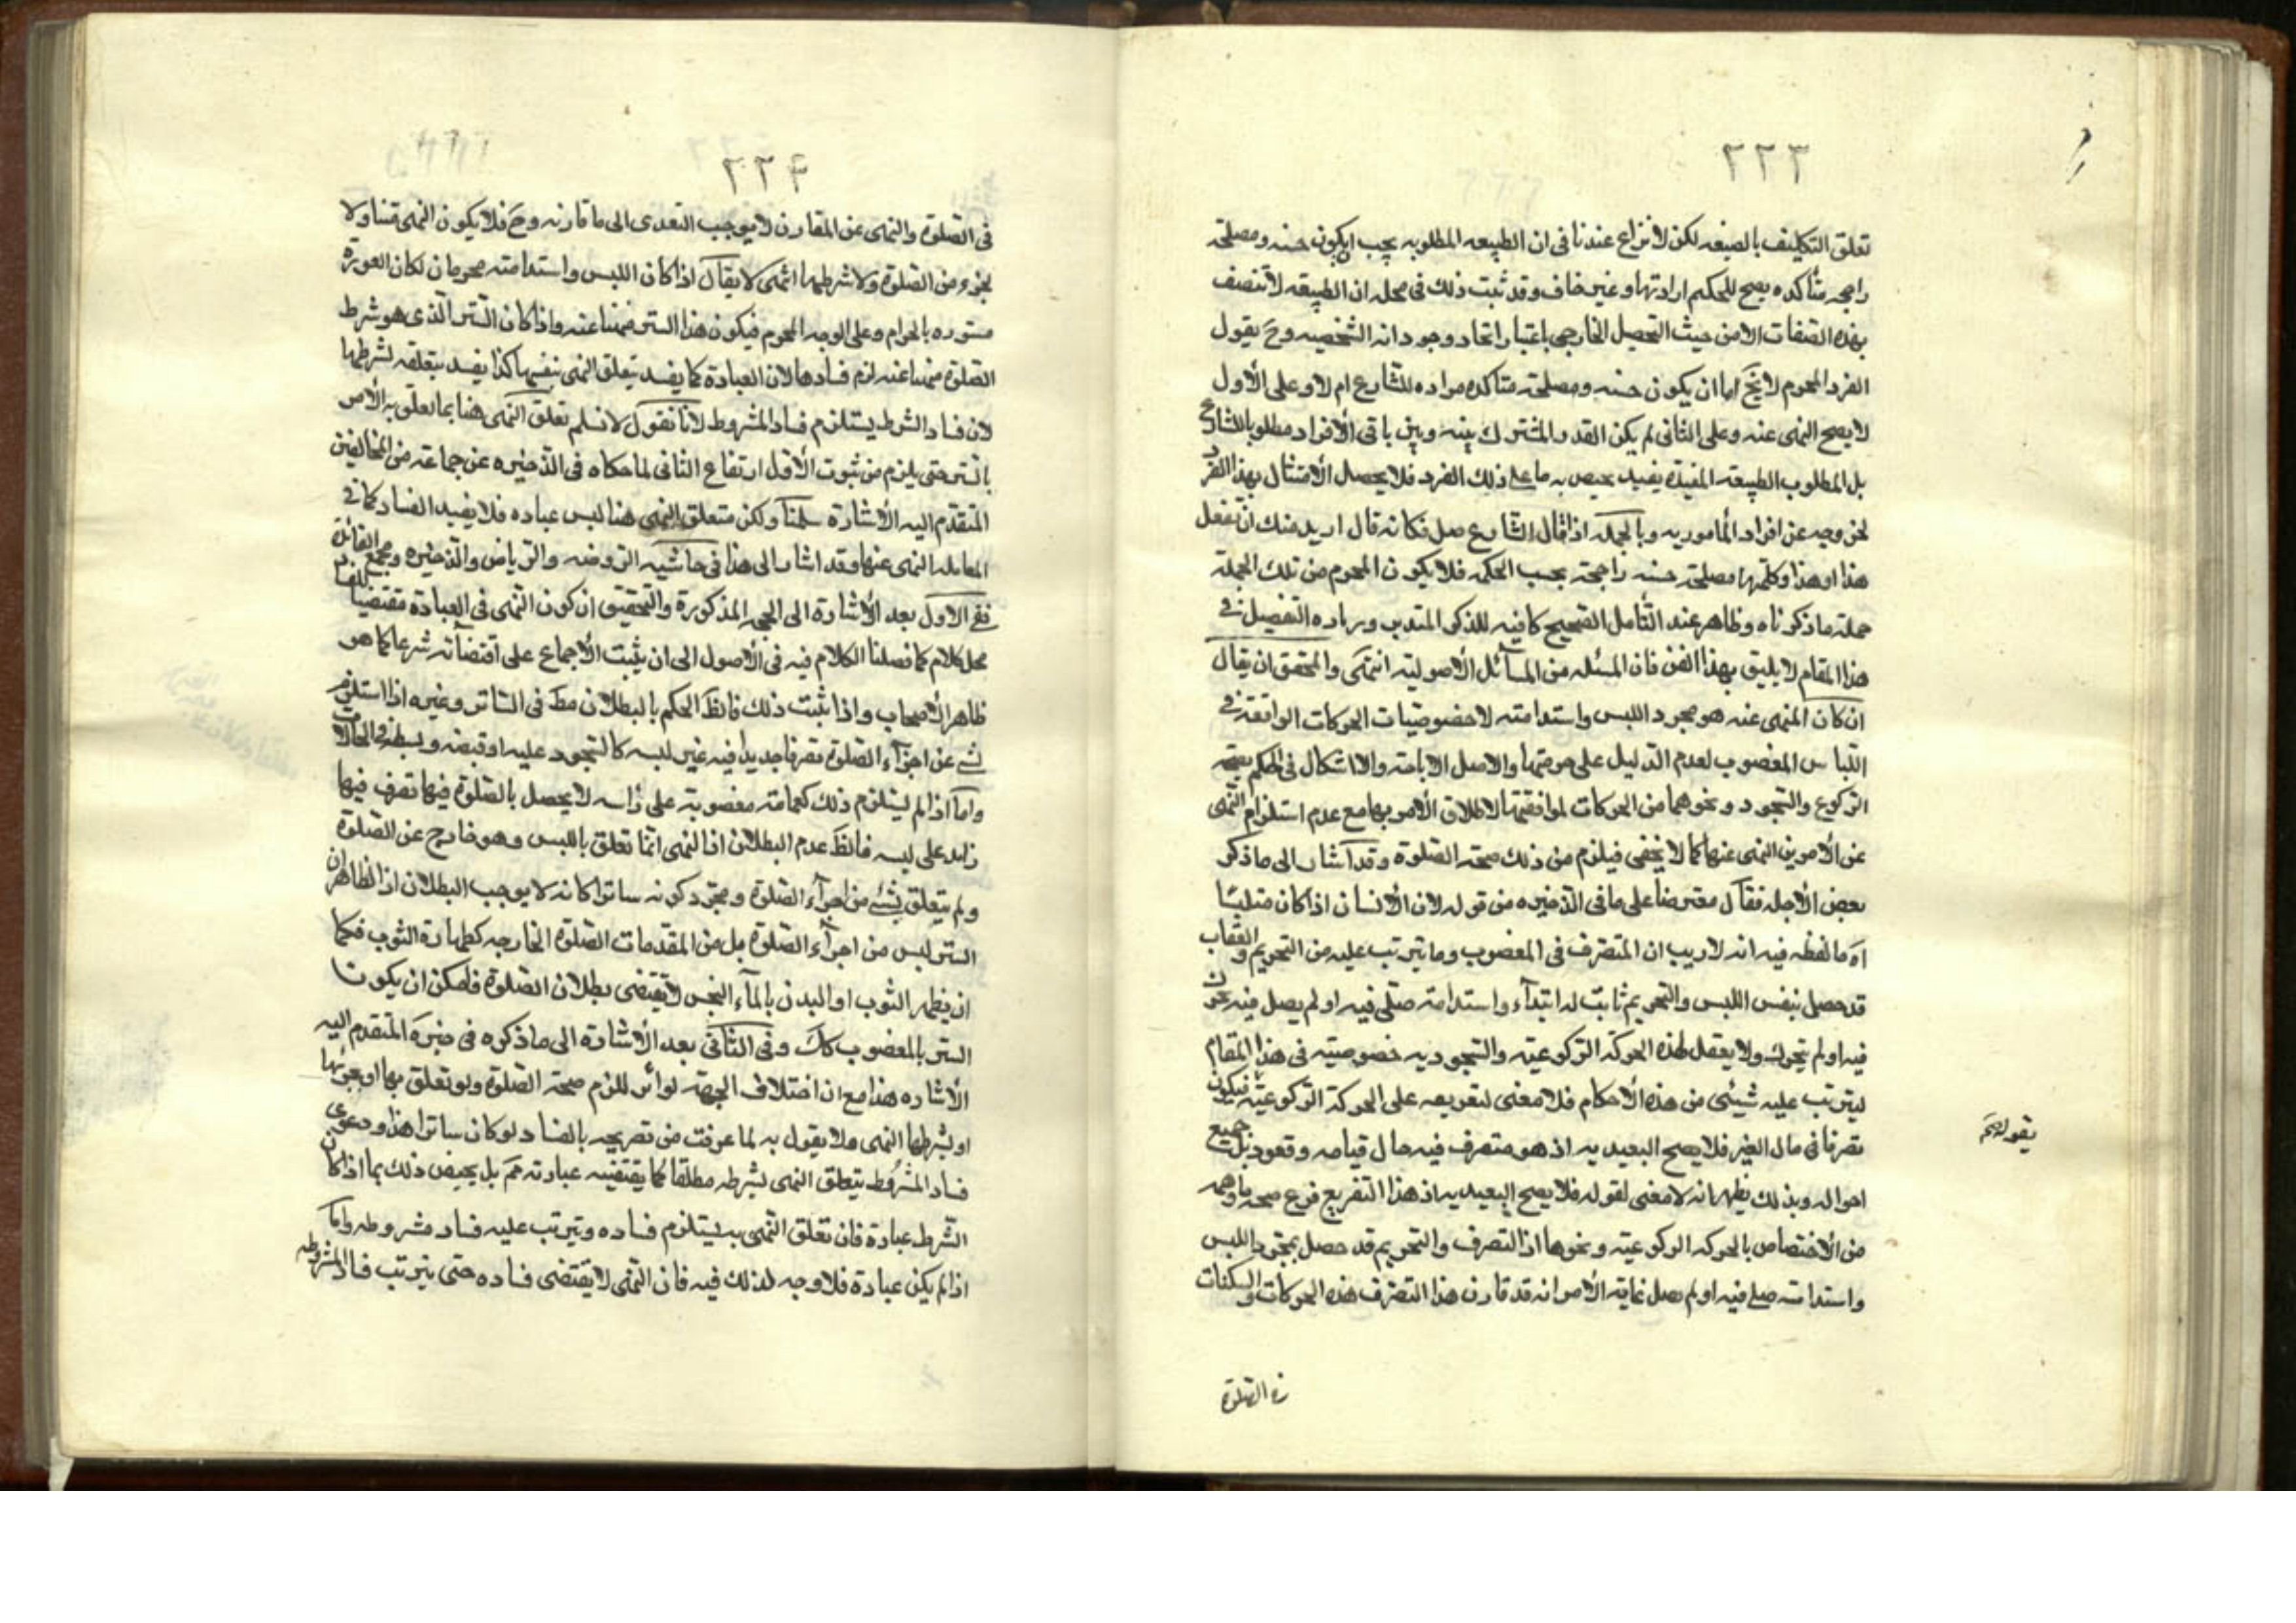 ٢٢٣
تعلق التكليف بالصيغه لكن لا نزاع عندنا فى ان الطبيعه المطلوبه يجب ان يكون حسنه ومصلحته
راجحه متأكده يصح للحكيم ارادتها وغير خاف وقد ثبت ذلك فى محله ان الطبيعه لا تتصف
بهذه الصفات الا من حيث التحصل الخارجى باعتبار اتحاد وجودانه الشخصيه وح يقول
الفرد المحرم لا يخ اما ان يكون حسنه ومصلحته متاكده مراده للشارع ام لا وعلى الأول
لا يصح النهى عنه وعلى الثانى لم يكن القدر المشترك بينه وبين باقى الأفراد مطلوبا للشارع
بل المطلوب الطبيعه المقيدة بقيد يختص به ما عدا ذلك الفرد فلا يحصل الأمتثال بهذا الفرد
لخروجه عن افراد المأموربه وبالجمله اذا قال الشارع صل فكانه قال اريد منك ان تفعل
هذا او هذا وكلها مصلحته حسنه راجحة بحسب الحكمه فلا يكون المحرم من تلك الجملة
حملة ما ذكرناه وظاهر عند التأمل الصحيح كافيه للذكى المتدبر وزياده التفصيل فى
هذا المقام لا يليق بهذا الفن فان المسئله من المسآئل الأصوليته انتهى والمحقق ان يقال
ان كان المنهى عنه هو مجرد اللبس واستدامته لا خصوصيات الحركات الواقعة فى
اللباس المغصوب لعدم الدليل على حرمتها والاصل الاباحة والا اشكال فى الحكم بصحه
الركوع والسجود ونحوهما من الحركات لموافقتها لاطلاق الأمر بها مع عدم استلزام النهى
عن الأمرين النهى عنها كما لا يخفى فيلزم من ذلك صحة الصلوة وقد آشار الى ما ذكر
بعض الأجله فقال معترضا على ما فى الذخيره من قوله لان الأنسان اذا كان متلبسا
اه ما لفظه فيه انه لا ريب ان المتصرف فى المغصوب وما يترتب عليه من التحريم والعقاب
قد حصل بنفس اللبس والتحريم ثابت له ابتدآء واستدامة صلى فيه او لم يصل فيه تحرك
فيه او لم يتحرك ولا يعقل لهذه الحركة الركوعيته والسجوديه خصوصيته فى هذا المقام
ليترتب عليه شيئى من هذه الأحكام فلا معنى لتفريعه على الحركة الركوعيته فيكون
تصرفا فى مال الغير فلا يصح التعبد به اذ هو متصرف فيه حال قيامه وقعوده بل جميع
احواله وبذلك يظهر انه لا معنى لقوله فلا يصح التعبد به اذ هذا التفريع فرع صحه ما توهمه
من الأختصاص بالحركه الركوعيته ونحوها اذ التصرف والتحريم قد حصل بمجرد اللبس
واستدامته صلى فيه او لم يصل غاية الأمر انه قد قارن هذا التصرف هذه الحركات والسكنات
فى الصلوة
يقوله ح
٢٢٤
فى الصلوة والنهى عن المقارن لا يوجب التعدى الى ما قارنه وح فلا يكون النهى متناولا
لجزء من الصلوة ولا شرطها انتهى لا يقال اذا كان اللبس واستدامته محرمان لكان العورة
مستوره بالحرام وعلى الوجه المحرم فيكون هذا الستر منهيا عنه واذا كان الستر الذى هو شرط
الصلوة منهيا عنه لزم فسادها لان العبادة كما يفسد بتعلق النهى بنفسها كذا يفسد بتعلقه لشرطها
لان فساد الشرط يستلزم فساد المشروط لانا نقول لا نسلم تعلق النهى هنا بما تعلق به الأمر
بالستر حتى يلزم من ثبوت الأول ارتفاع الثانى لما حكاه فى الذخيره عن جماعة من المخالفين
المتقدم اليه الأشارة سلمنا ولكن متعلق النهى هنا ليس عباده فلا يفيد الفساد كما فى
المعامله النهى عنها وقد اشار الى هذا فى حاشيته الروضه والرياض والذخيره ومجمع الفائدة
ففى الاول بعد الأشارة الى الحجه المذكورة والتحقيق ان كون النهى فى العبادة مقتضيا للفساد
محل كلام كما فصلنا الكلام فيه فى الأصول الى ان يثبت الأجماع على اقتضآئه شرعا كما هو
ظاهر الأصحاب واذا ثبت ذلك فالظ الحكم بالبطلان مط فى الساتر وغيره اذا استلزم
شئ عن اجزآء الصلوة تصرفا جديدا فيه غير لبسه كالسجود عليه او قبضه وبسطه فى الحالات
واما اذا لم يستلزم ذلك كعمامة مغصوبة على رأسه لا يحصل بالصلوة فيها تصرف فيها
زايد على لبسه فالظ عدم البطلان اذ النهى انما تعلق باللبس وهو خارج عن الصلوة
ولم يتعلق بشئ من اجزآء الصلوة ومجرد كونه ساترا كانه لا يوجب البطلان اذ الظاهر ان
الستر ليس من اجزآء الصلوة بل من المقدمات الصلوة الخارجه كطهارة الثوب فكما
ان يطهر الثوب او البدن بالمآء النجس لا يقتضى بطلان الصلوة فلمكن ان يكون
الستر بالمغصوب كك وفى الثانى بعد الأشارة الى ما ذكره فى المتقدم اليه
الأشاره هذا مع ان اختلاف الجهة لو اثر للزم صحة الصلوة ولو تعلق بها او بجزئها
او بشرطها النهى ولا يقول به لما عرفت من تصريحه بالفساد لو كان ساترا هذا ودعوى
فساد المشروط بتعلق النهى بشرطه مطلقا كما يقتضيه عبارته مم بل يختص ذلك بما اذا كان
الشرط عبادة فان تعلق النهى به يستلزم فساده ويترتب عليه فساد مشروطه واما
اذا لم يكن عبادة فلا وجه لذلك فيه فان النهى لا يقتضى فساده حتى يترتب فساد المشروطه